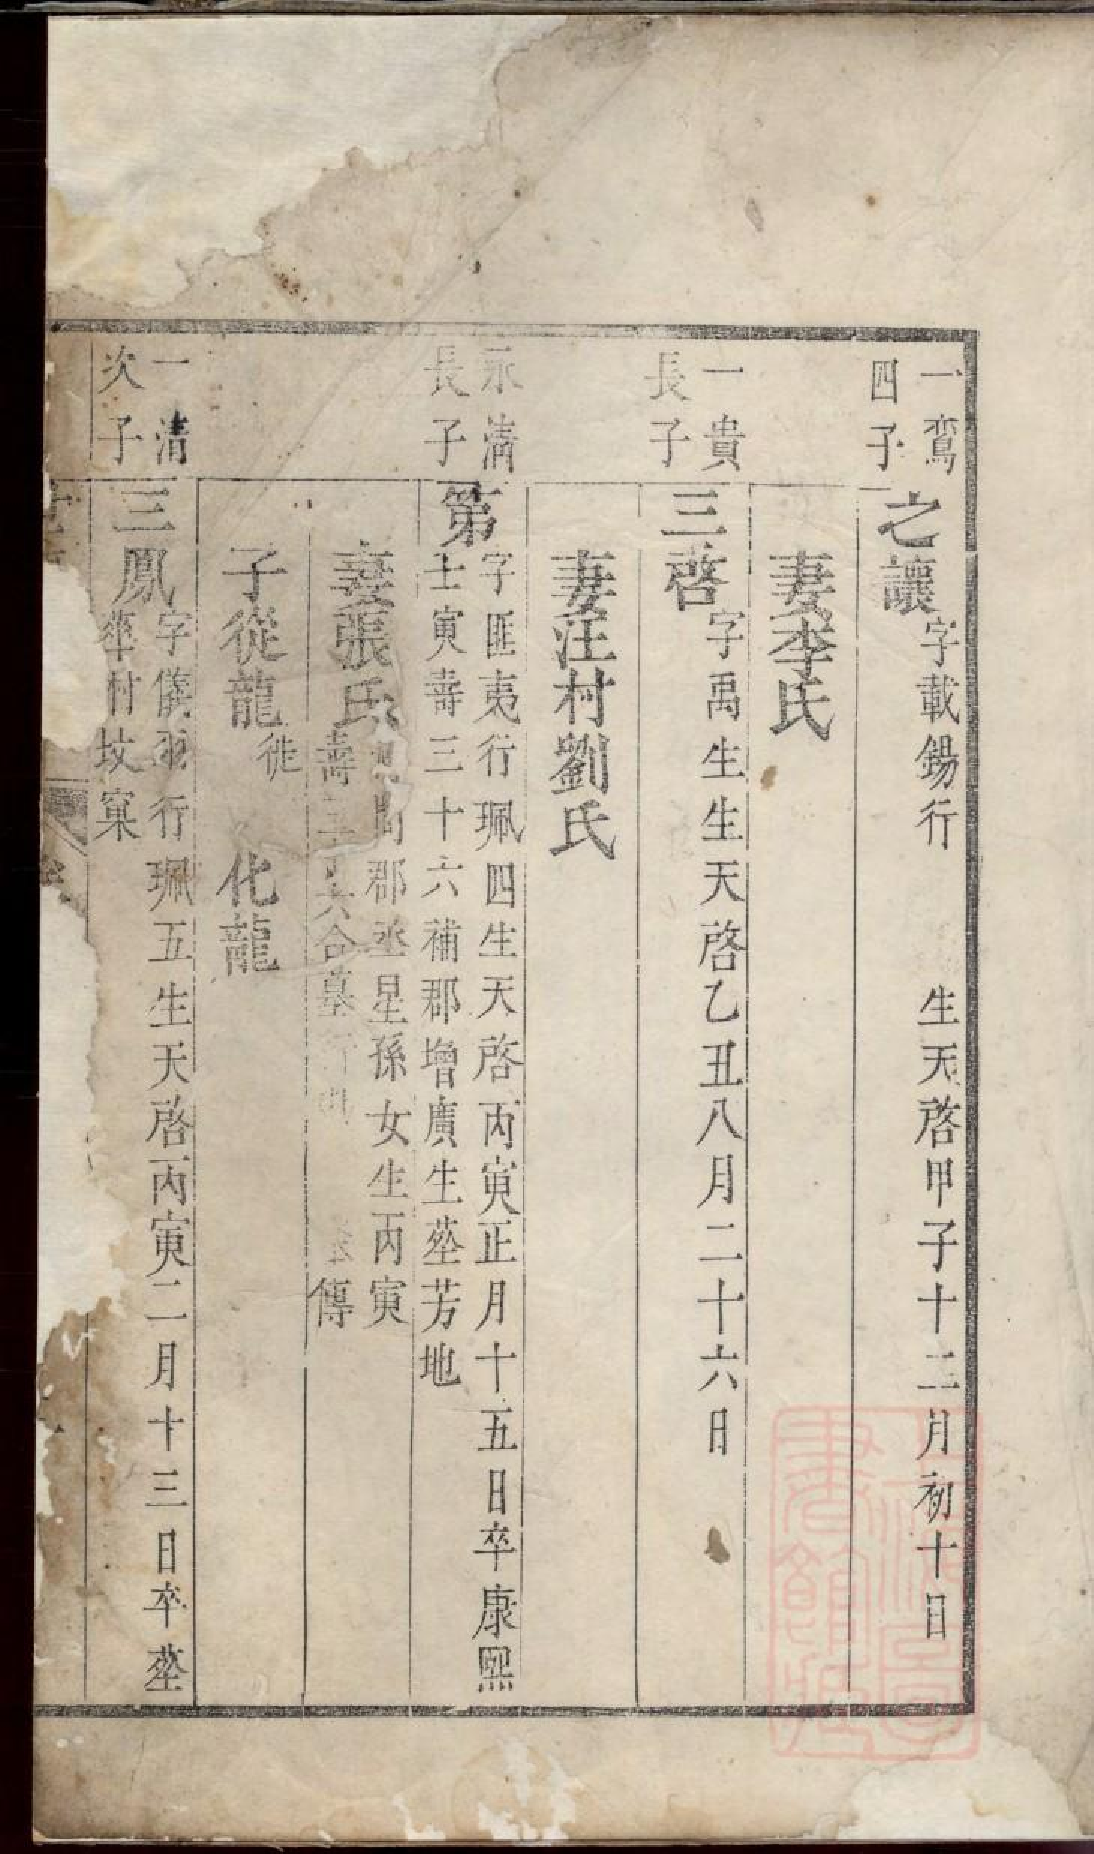 一鸞
四子
之讓
字載錫行　生天啓甲子十二月初十日
妻李氏
一貴
長子
三啓
字禹生生天啓乙丑八月二十六日
妻汪村劉氏
永清
長子
第
字匪夷行珮四生天啓丙寅正月十五日卒康熙
士寅壽三十六補郡增廣生葬芳地
妻張氏
間郡丞星孫女生丙寅
壽三十六合墓
傳
子從龍
徙
化龍
一清
次子
三鳳
字儀羽行珮五生天啓丙寅二月十三日卒葬
率村坟窠